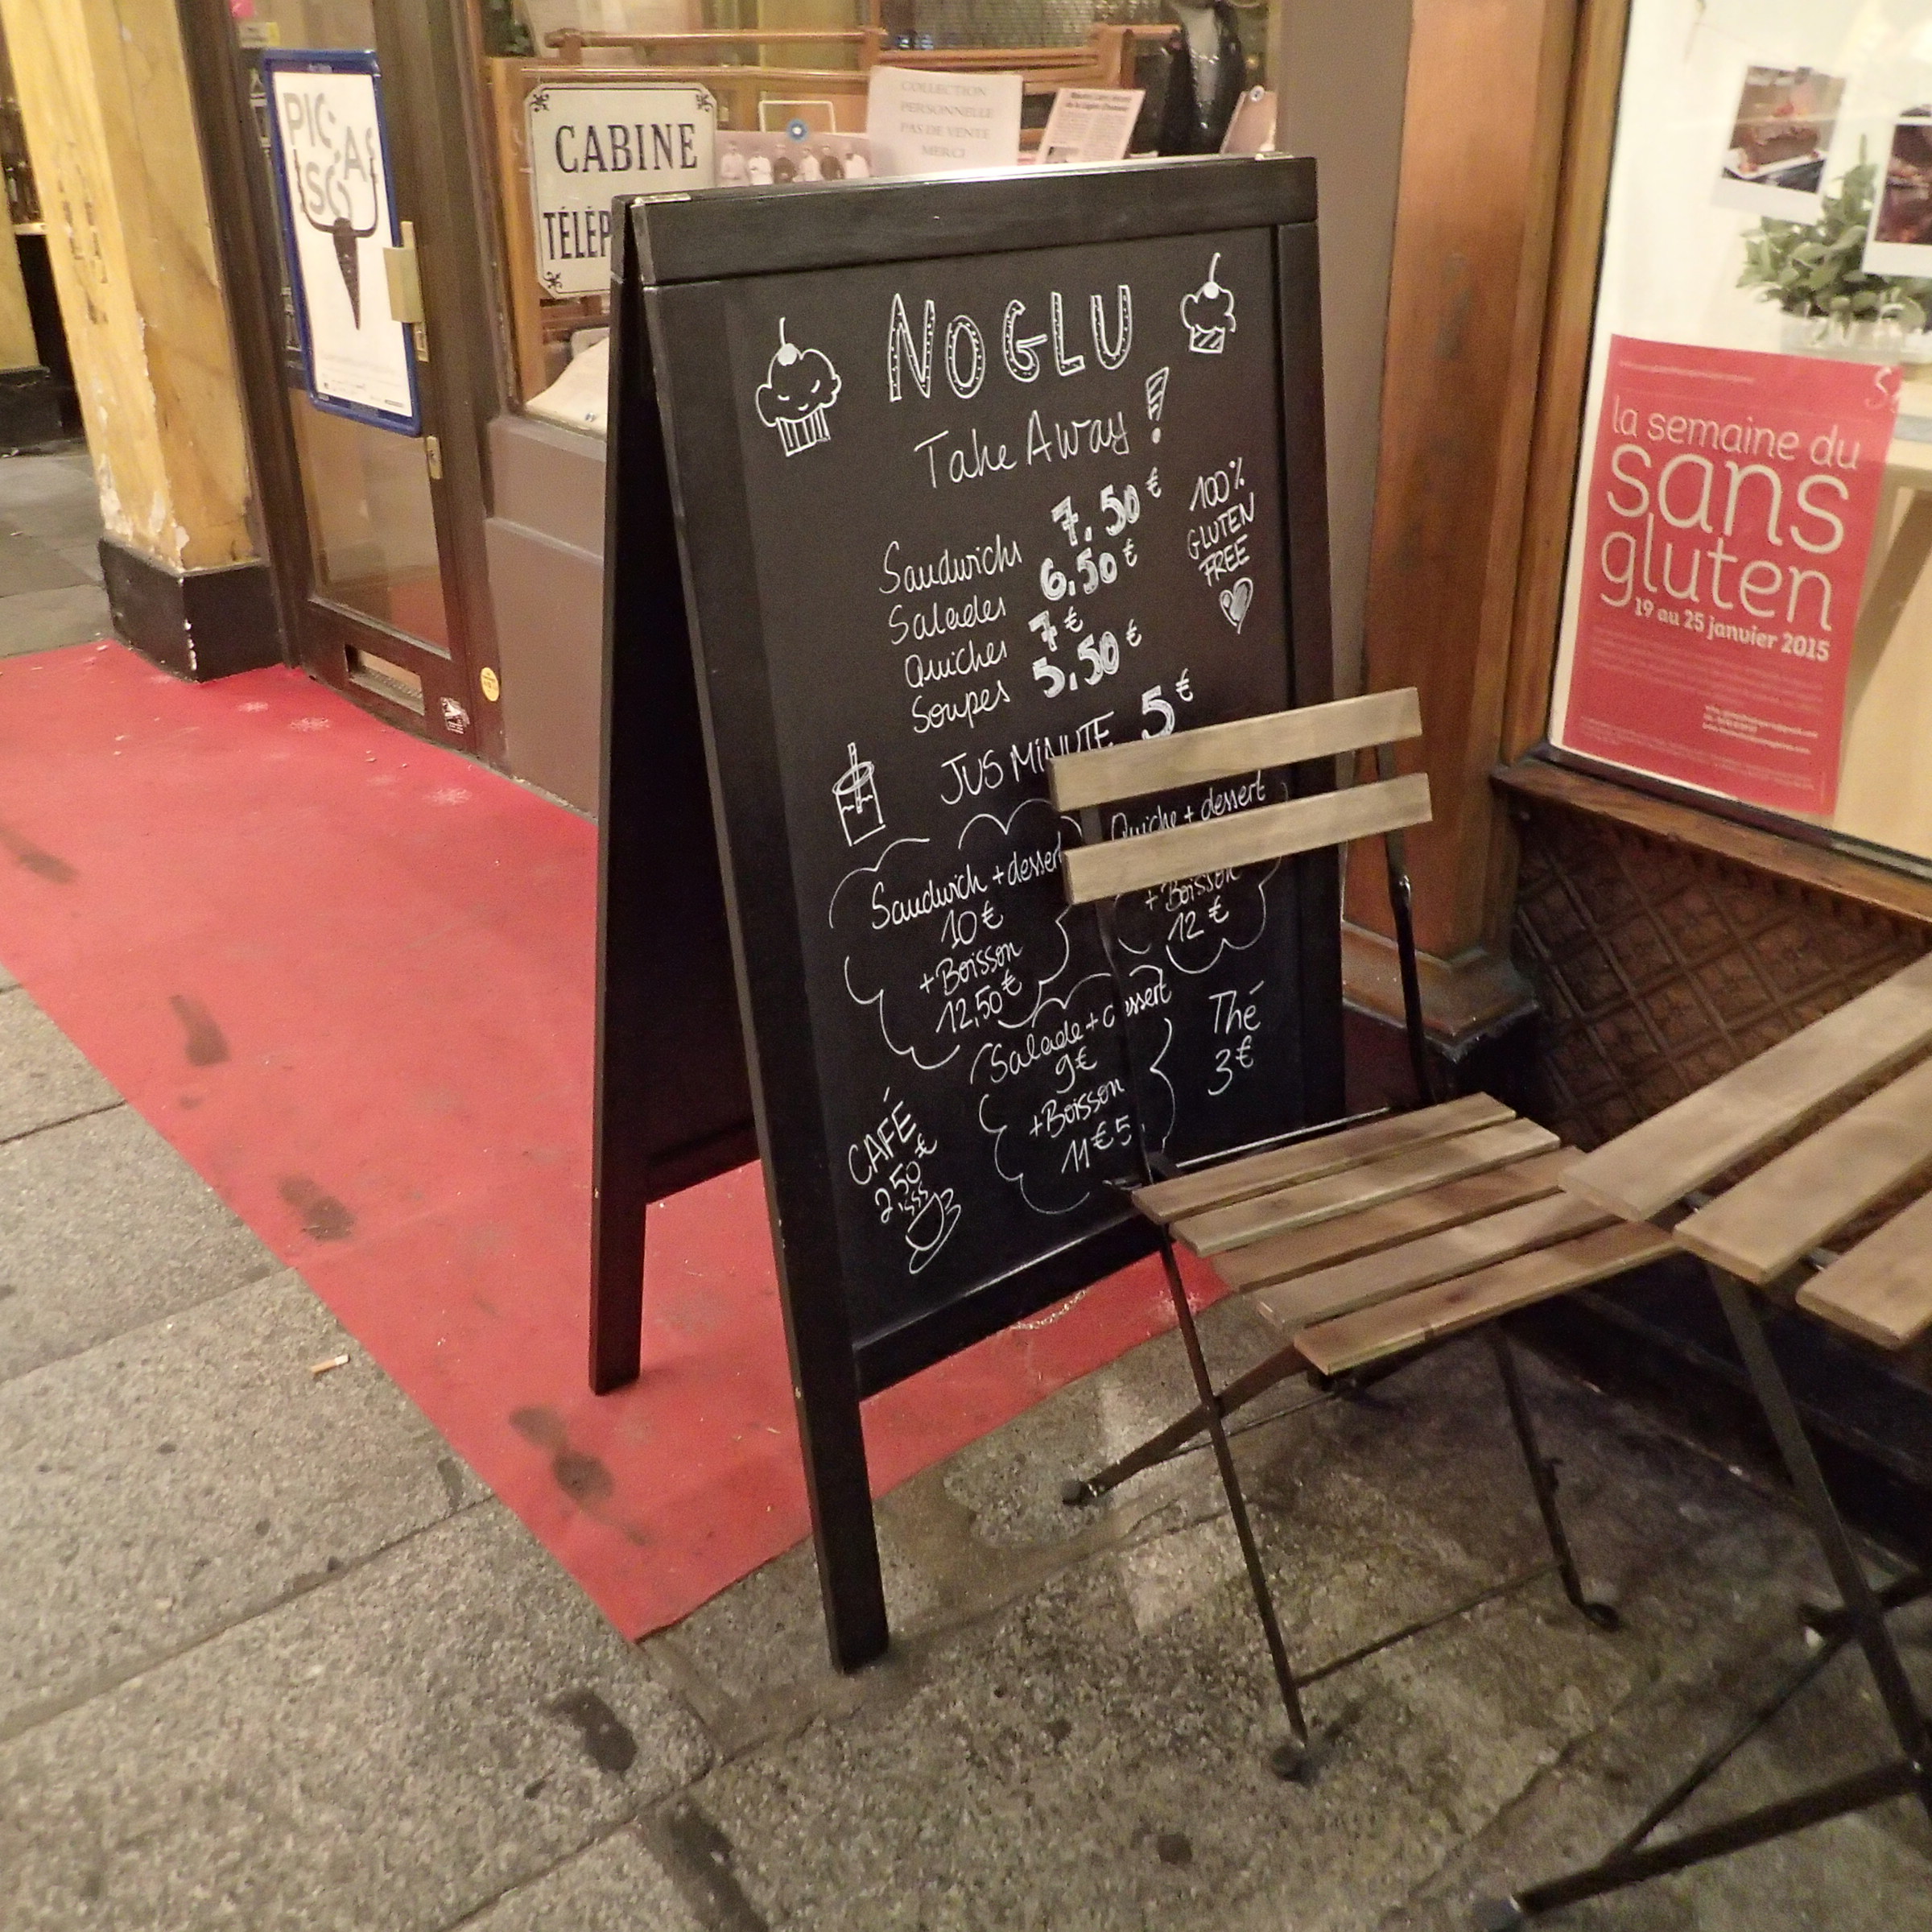 PIC
AS
SO
CABINE
TÉLÉP
COLLECTION
PERSONNELLE
PAS DE VENTE
MERCI
NOGLU
Take Away!
Sandwichs 7,50€
Salades 6,50€
Quiches 7€
Soupes 5,50€
100%
GLUTEN
FREE
JUS MINUTE 5€
Sandwich + dessert
10€
+ Boisson
12,50€
Quiche + dessert
+ Boisson
12€
Salade + dessert
9€
+ Boisson
11€5
Thé
3€
CAFÉ
2,50€
la semaine du
sans
gluten
19 au 25 janvier 2015